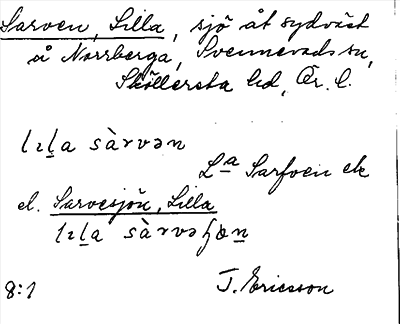 Sarven, Lilla, sjö åt sydväst
å Norrberga, Svennevads sn,
Sköllersta hd, Ör. l.
lıl̲a sàrvən
L:a Sarfven ek
el. Sarvesjön, Lilla
lıl̲a sàrvəʃön̲
8:1 T. Ericsson